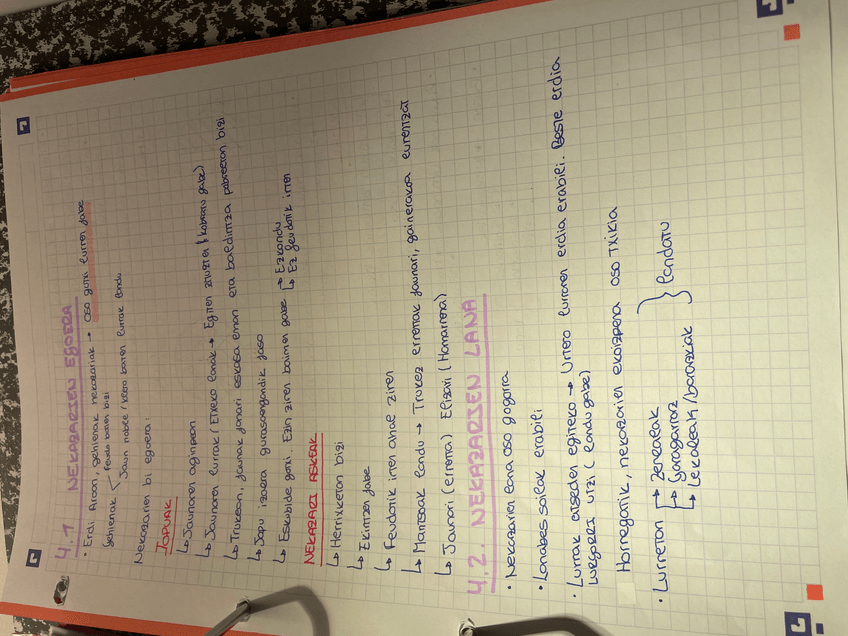 4.1 NEKAZARIEN EGOERA
• Erdi Aroan, gehienak nekazariak → oso gutxi lurren jabe
gehienak < feudo baten bizi
Jaun noble / klero baten lurrak landu
Nekazarien bi egoera:
JOPUAK
↳ Jaunaren aginpean
↳ Jaunaren lurrak / Etxeko lanak → Egiten zituzten (kobratu gabe)
↳ Trukean, jaunak janari eskasa eman eta baldintza pobreetan bizi
↳ Jopu izaera gurasoengandik jaso
↳ Eskubide gutxi. Ezin ziren baimen gabe → Ezkondu
↳ Ez feudotik irten
NEKAZARI ASKEAK
↳ Herrixketan bizi
↳ Ekintzen jabe
↳ Feudotik irten ahal ziren
↳ Mantsoak landu → Trukez errentak jaunari, gainerakoa eurentzat
↳ Jaunari (errenta) Elizari (Hamarrena)
4.2. NEKAZARIEN LANA
• Nekazarien lana oso gogorra
• Lanabes soilak erabili
• Lurrak atseden egiteko → Urtero lurraren erdia erabili. Beste erdia
lugorri utzi (landu gabe)
Horregatik, nekazarien ekoizpena oso txikia
• Lurretan → Zerealak
↳ Garagarraz
↳ Lekaleak/barazkiak } landatu